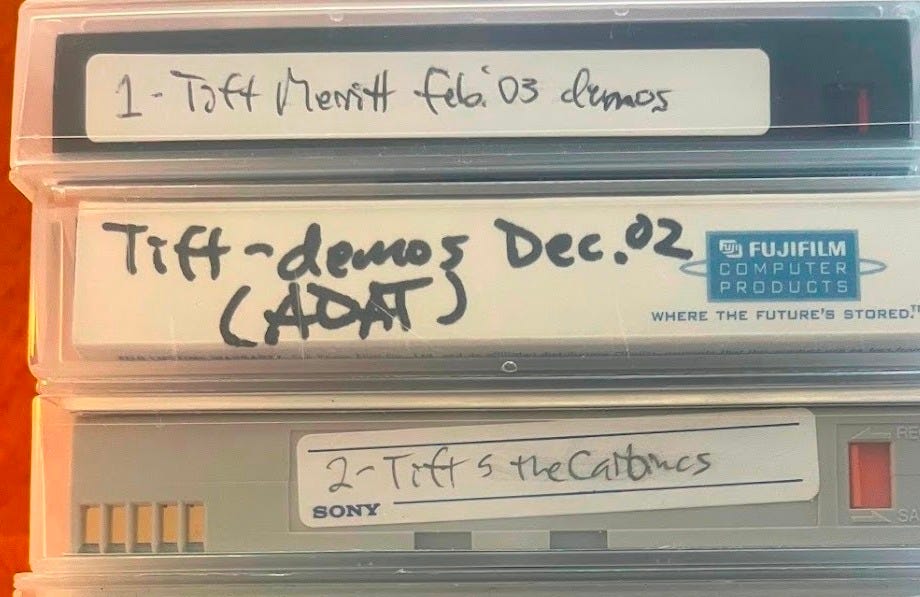 1 - Tift Merritt Feb. '03 demos
Tift - demos Dec. 02
(ADAT)
FUJIFILM
COMPUTER
PRODUCTS
WHERE THE FUTURE'S STORED.™
2 - Tift & the Carbines
SONY
RE
SA